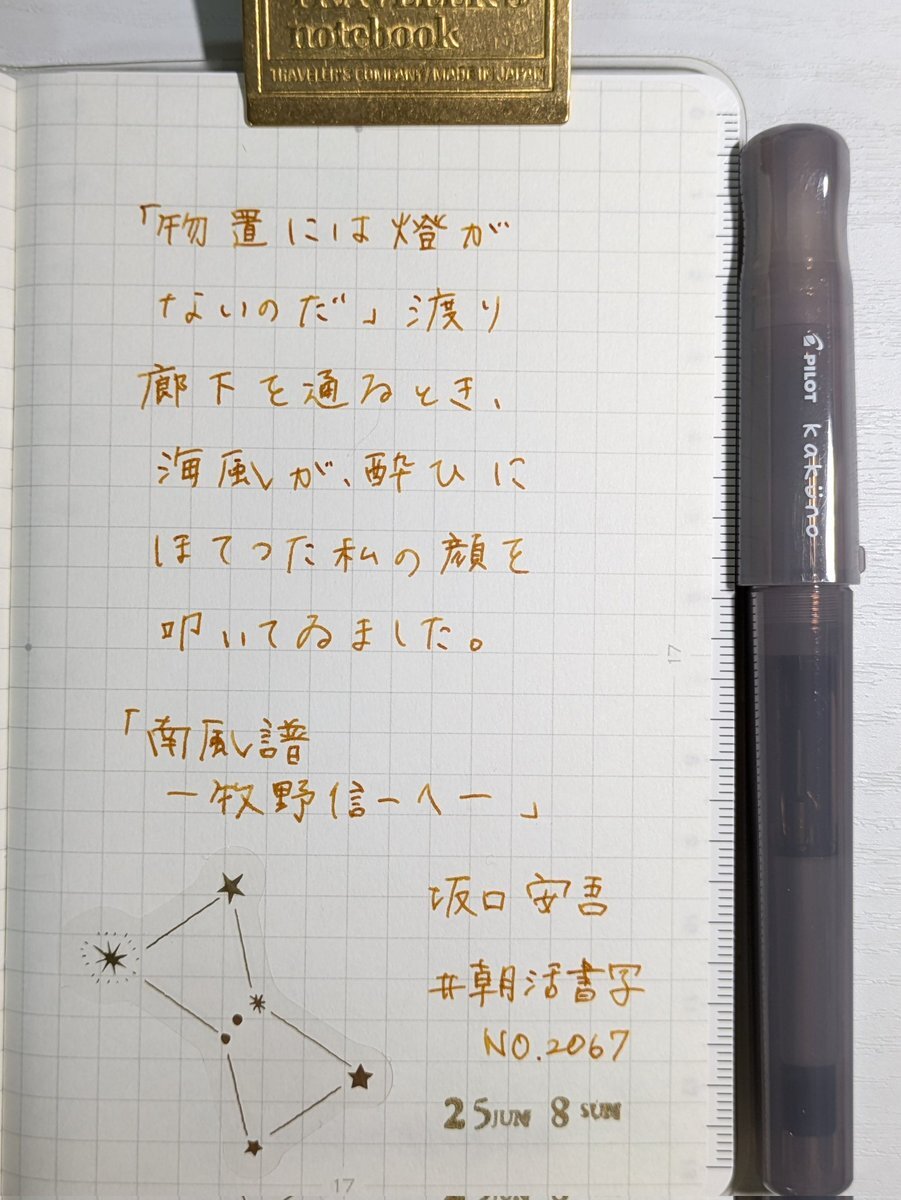 notebook
TRAVELER'S COMPANY/MADE IN JAPAN
「物置には燈が
ないのだ」渡り
廊下を通るとき、
海風が、酔ひに
ほてつた私の顔を
叩いてゐました。
「南風譜
ー牧野信一へー」
坂口安吾
#朝活書写
NO.2067
25JUN 8 SUN
17
17
PILOT kaküno